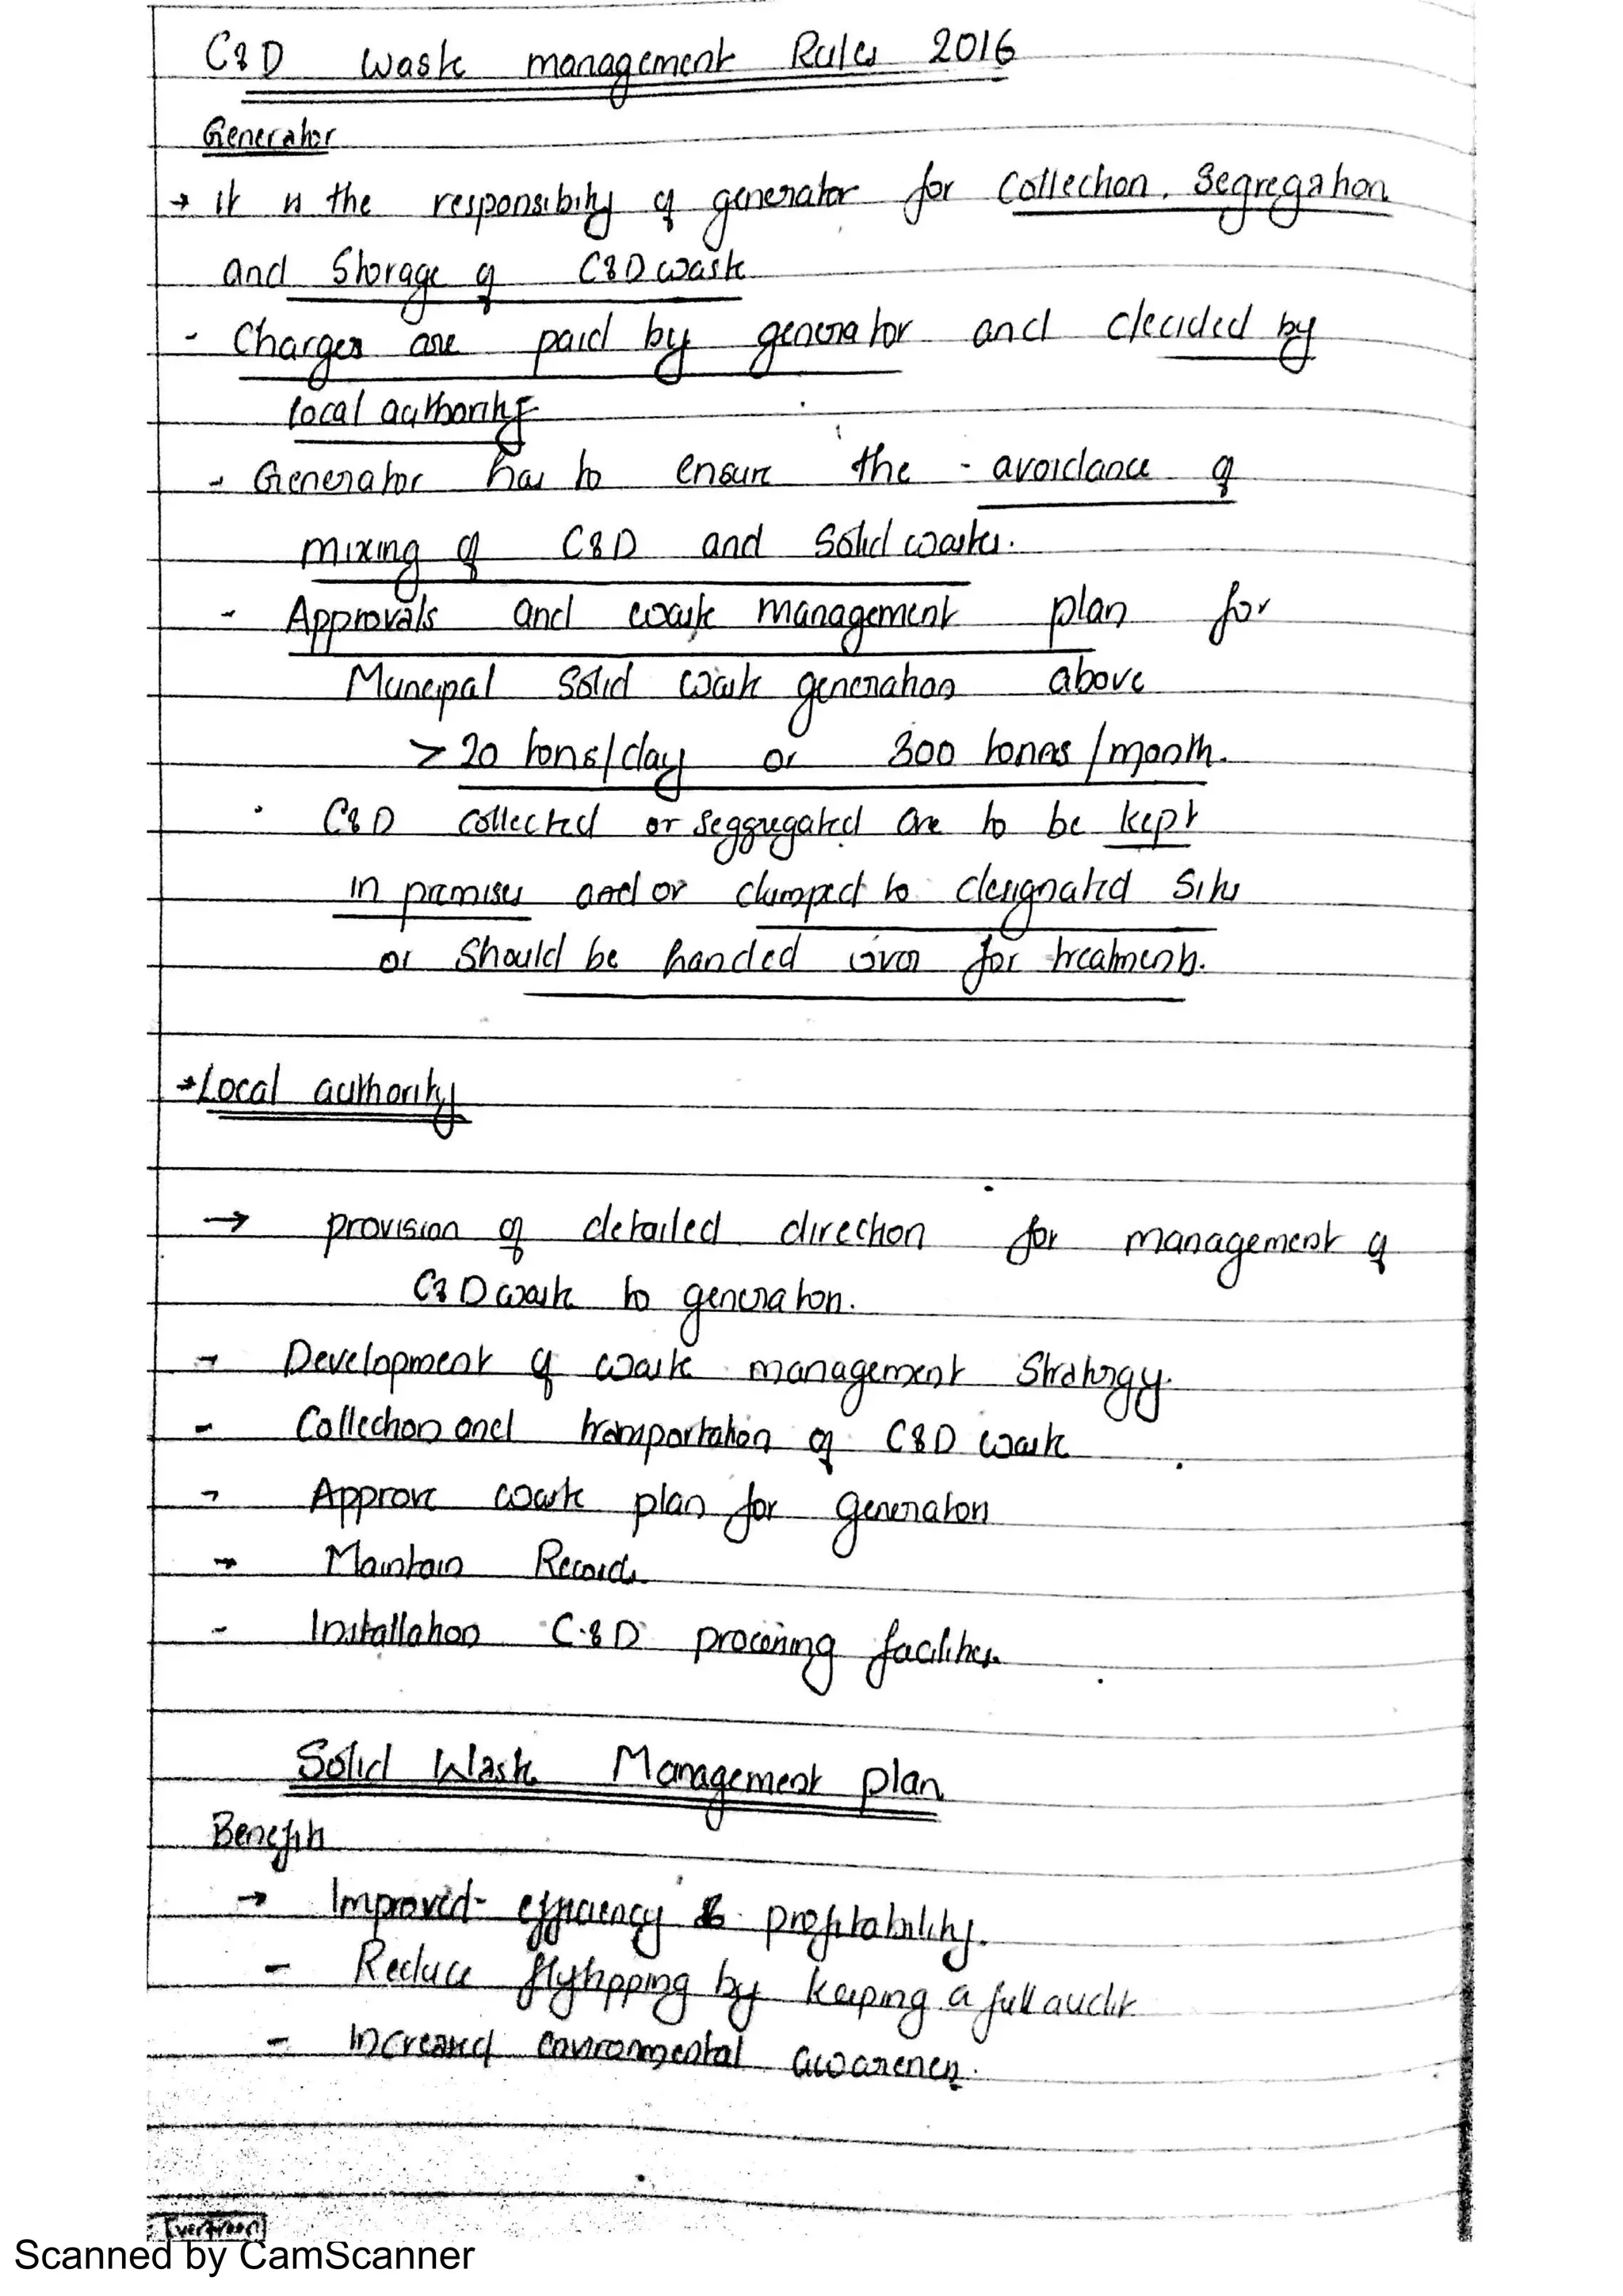 C&D Waste management Rules 2016
Generator
→ It is the responsibility of generator for Collection, Segregation
and Storage of C&D waste
- Charges are paid by generator and decided by
local authority
→ Generator has to ensure the - avoidance of
mixing of C&D and Solid wastes.
- Approvals and waste management plan for
Muncipal Solid waste generation above
> 20 tons/day or 300 tonns/month.
· C&D collected or seggregated are to be kept
in premises and or dumped to designated sites
or should be handed over for treatments.
→ Local authority
→ provision of detailed direction for management of
C&D waste to generators.
→ Development of waste management Strategy.
- Collection and transportation of C&D waste
→ Approve waste plan for generators
→ Maintain Records
- Installation C&D processing facilities.
Solid Waste Management plan
Benefits
→ Improved efficiency & profitability.
- Reduce flytipping by keeping a full audit
- Increased environmental awareness.
Scanned by CamScanner